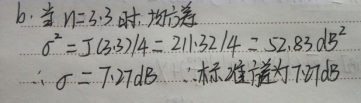 b. 当 n=3.3 时. 均方差
σ² = J(3.3)/4 = 211.32/4 = 52.83 dB²
∴ σ = 7.27dB ∴标准差为7.27dB